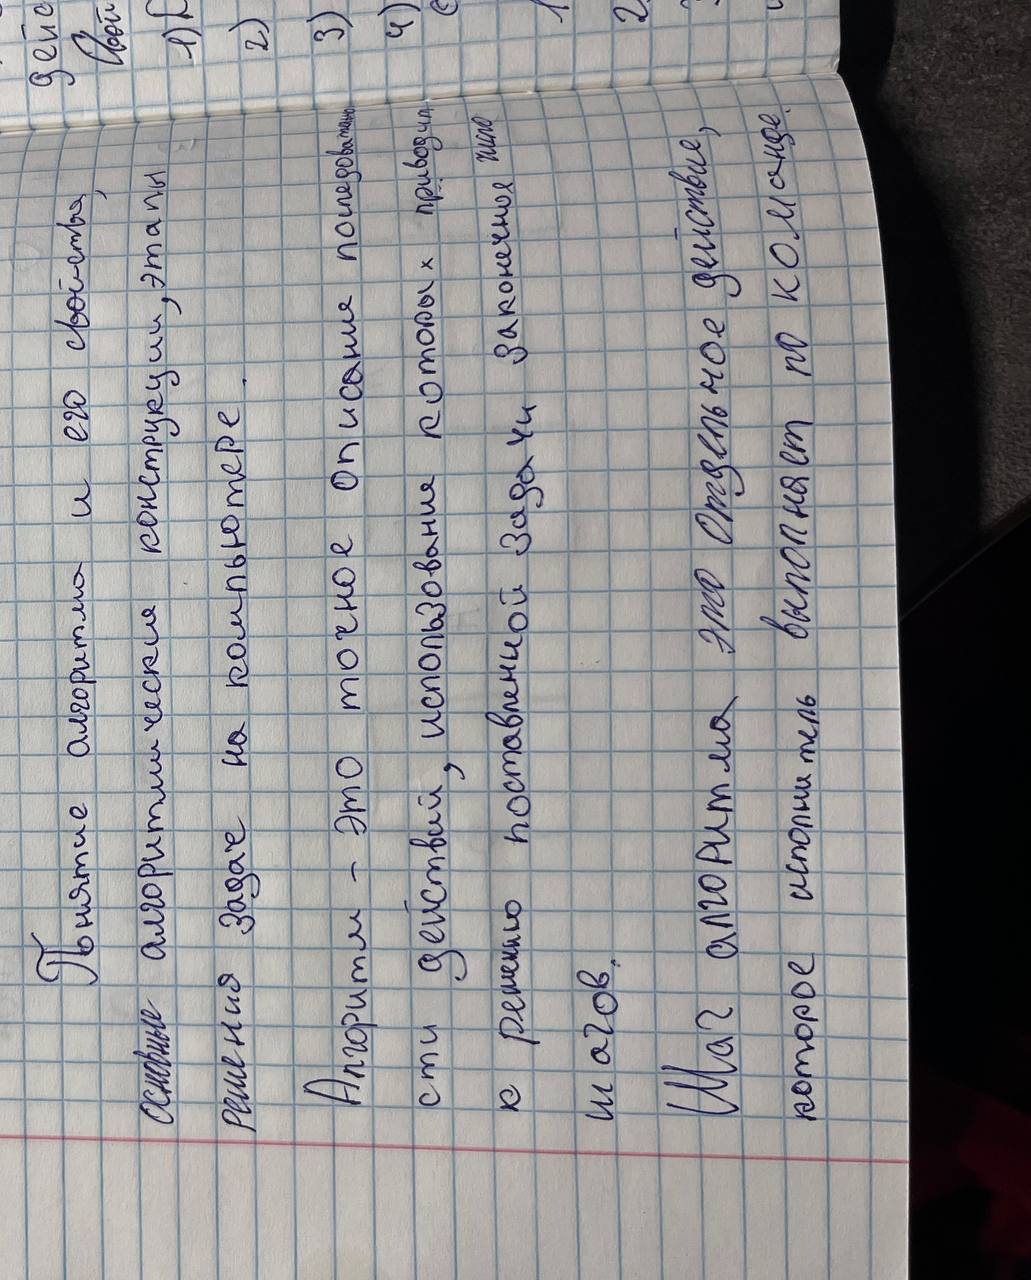 Понятие алгоритма и его свойства,
основные алгоритмические конструкции, этапы
решения задаче на компьютере.
Алгоритм - это точное описание последовательно
сти действий, использование которых приводит
к решению поставленной задачи законечное число
шагов.
Шаг алгоритма это отдельное действие,
которое исполнитель выполняет по команде.
дейс
Свой
1)
2)
3)
4)
1
2